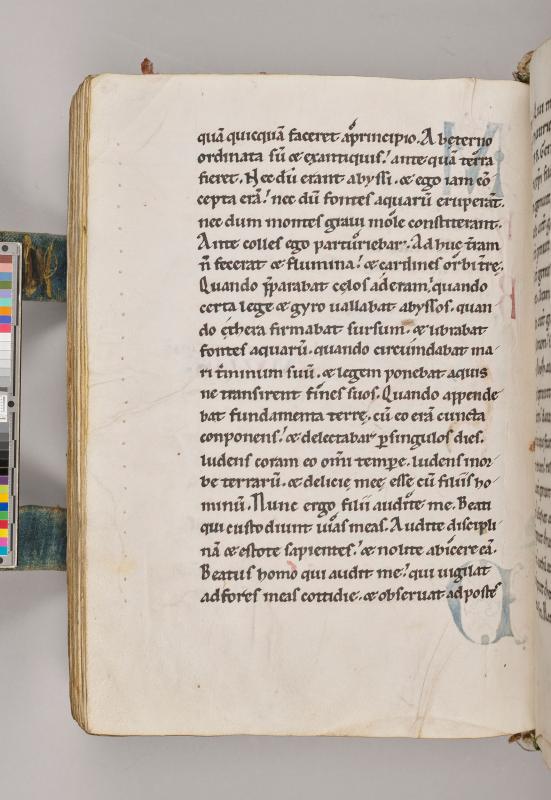 quā quicquā faceret a principio. Ab eterno
ordinata sū & ex antiquis! ante quā terra
fieret. Nec dū erant abyssi. & ego iam cō
cepta erā! nec dū fontes aquarū eruperāt.
nec dum montes graui mole constiterant.
Ante colles ego parturiebar. Adhuc t̄ram
n̄ fecerat & flumina! & cardines orbi tr̄ę.
Quando p̄parabat cęlos aderam! quando
certa lege & gyro uallabat abyssos. quan
do ęthera firmabat sursum. & librabat
fontes aquarū. quando circūdabat ma
ri t̄minum suū. & legem ponebat aquis
ne transirent fines suos. Quando appende
bat fundamenta terrę. cū eo erā cuncta
conponens! & delectabar p singulos dies.
ludens coram eo om̄i tempe. ludens in or
be terrarū. & delicię meę esse cū filiis ho
minū. Nunc ergo filii audite me. Beati
qui custodiunt uias meas. Audite discipli
nā & estote sapientes! & nolite abicere eā.
Beatus homo qui audit me! qui uigilat
ad fores meas cottidie. & obseruat ad postes